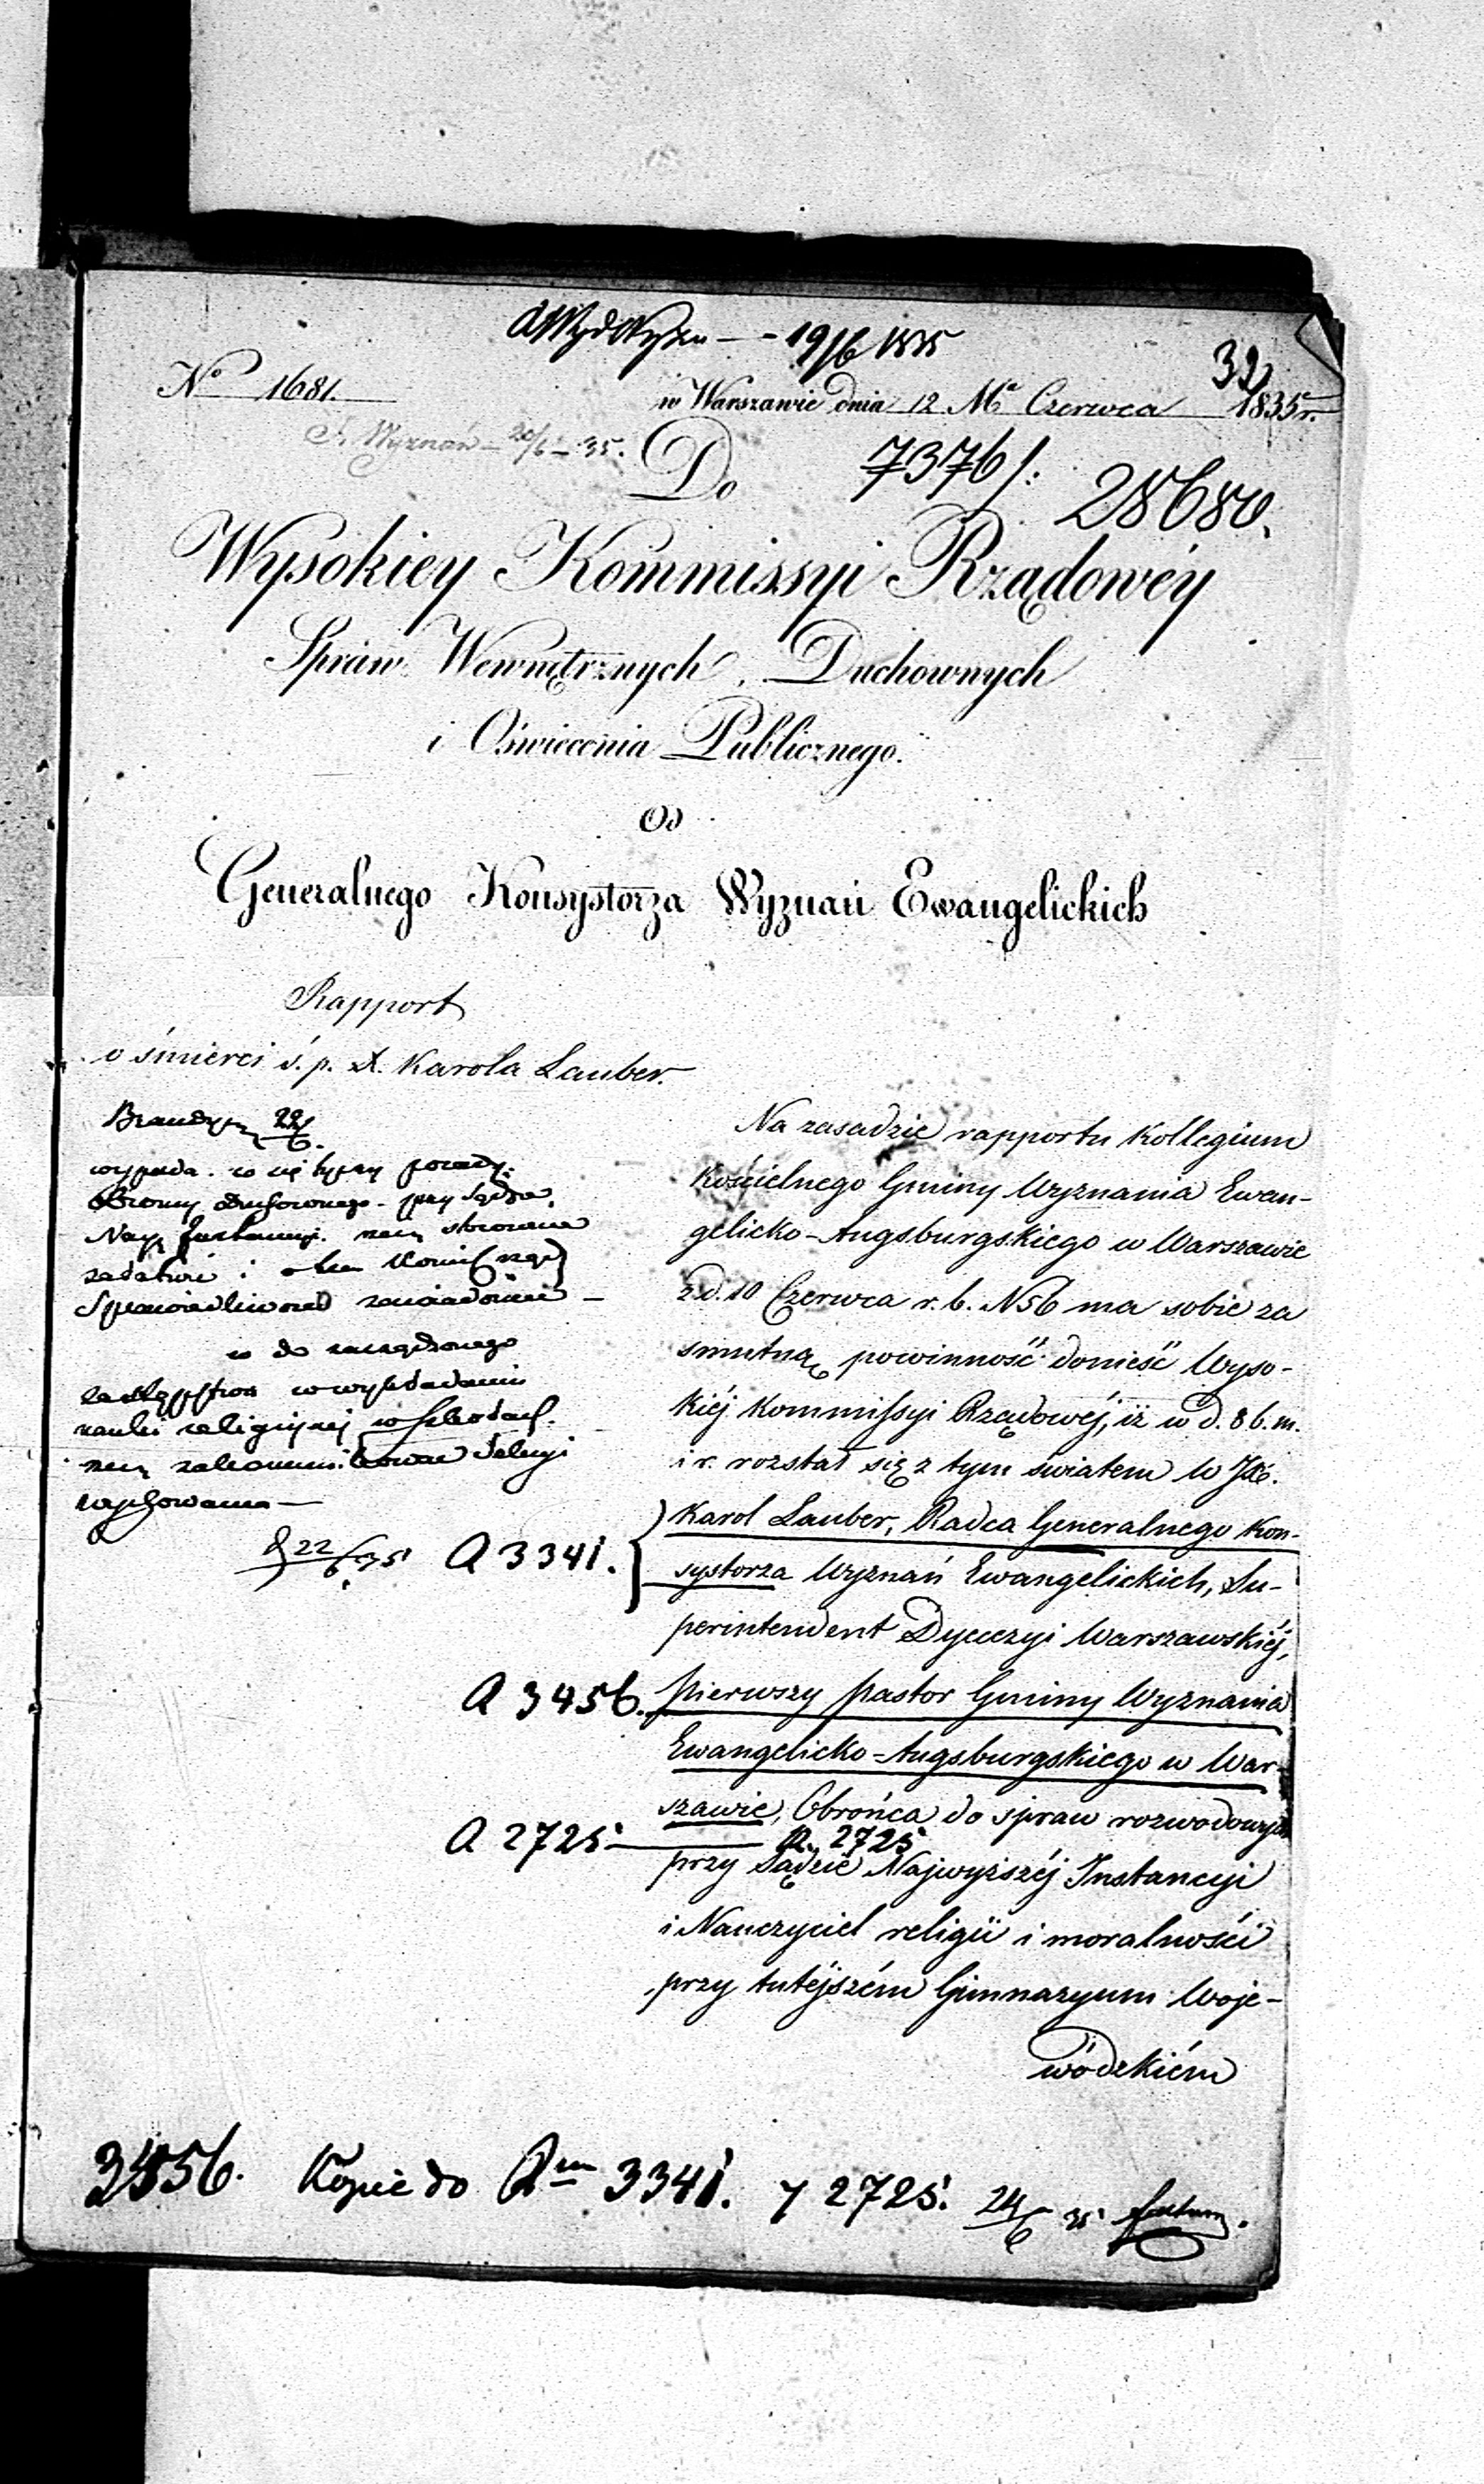 19/6 1835
32
No 1681.
w Warszawie dnia 12 Ma Czerwca 1835 r.
S. Wyznań 20/6 35.
Do
7376/:
28680.
Wysokiey Kommissyi Rządowéy
Spraw Wewnętrznych, Duchownych
i Oświecenia Publicznego.
Od
Generalnego Konsystorza Wyznań Ewangelickich
Rapport
o śmierci ś. p. X. Karola Lauber.
22/6.
wypada. co się tyczy posady
Obrony Duchownego przy Sądzie
Nayż Instancyi. stosownie
i
Sprawiedliwości zawiadomić –
co do zarządzonego
zastępstwa w wykładaniu
nauki religijnej w szkołach.
wychowania —
22/6 35 A 3341.
A 3456.
A 2725
Na zasadzie rapportu Kollegium
Kościelnego Gminy Wyznania Ewan-
gelicko-Augsburgskiego w Warszawie
z d. 10 Czerwca r. b. N 56 ma sobie za
smutną powinność donieść Wyso-
kiéj Kommissyi Rządowéj, iż w d. 8 b. m.
i r. rozstał się z tym światem W JX.
Karol Lauber, Radca Generalnego Kon-
systorza Wyznań Ewangelickich, Su-
perintendent Dyecezyi Warszawskiéj,
pierwszy pastor Gminy Wyznania
Ewangelicko-Augsburgskiego w War-
szawie, Obrońca do spraw rozwodowych
A. 2725
przy Sądzie Najwyższéj Instancyi
i Nauczyciel religii i moralności
przy tutéjszém Gimnazyum Woje-
wódzkiém
3456. Kopie do A 3341. y 2725. 24/6 35